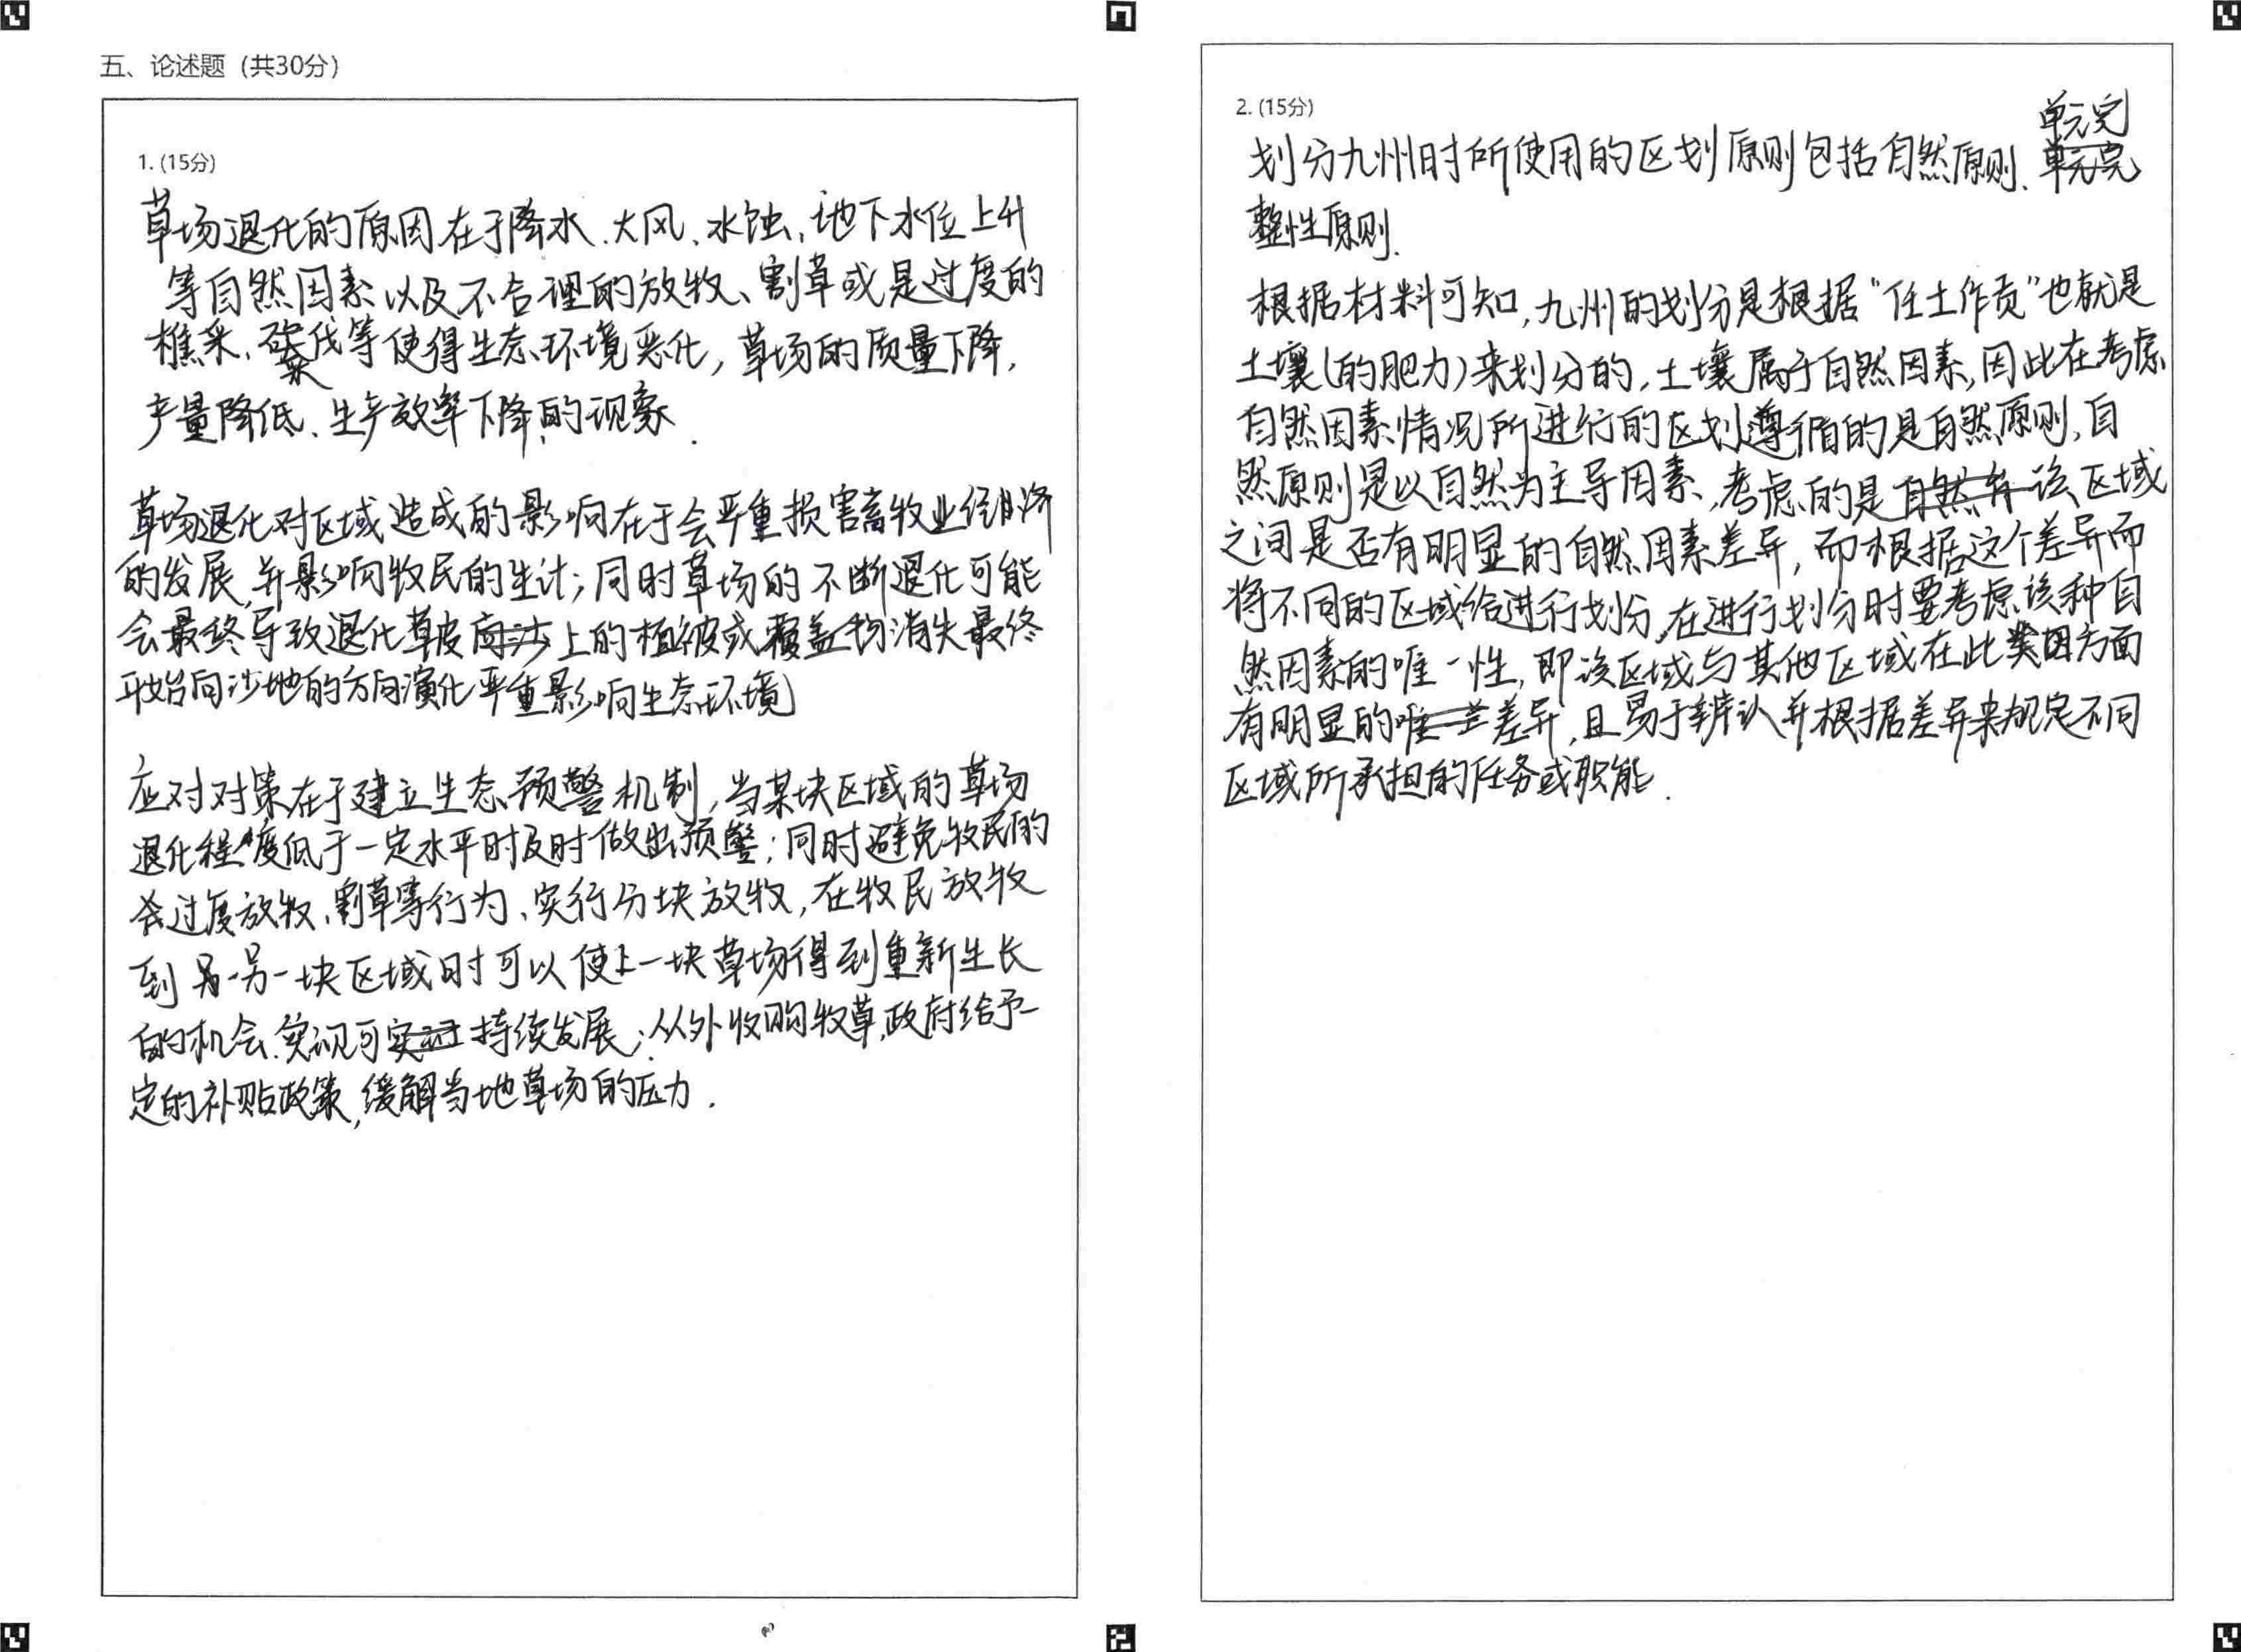 五、论述题（共30分）
1. (15分)
草场退化的原因在于降水、大风、水蚀、地下水位上升
等自然因素以及不合理的放牧、割草或是过度的
樵采、砍伐等使得生态环境恶化，草场的质量下降，
产量降低、生产效率下降的现象.
草场退化对区域造成的影响在于会严重损害畜牧业经济
的发展,并影响牧民的生计；同时草场的不断退化可能
会最终导致退化草皮上的植被或覆盖物消失最终
开始向沙地的方向演化严重影响生态环境
应对对策在于建立生态预警机制,当某块区域的草场
退化程度低于一定水平时及时做出预警；同时避免牧民的
过度放牧、割草等行为、实行分块放牧,在牧民放牧
到另一块区域时可以使上一块草场得到重新生长
的机会.实现可持续发展；从外收购牧草,政府给予一
定的补贴政策,缓解当地草场的压力.
2. (15分)
划分九州时所使用的区划原则包括自然原则、单元完
整性原则.
根据材料可知,九州的划分是根据“任土作贡”也就是
土壤(的肥力)来划分的,土壤属于自然因素,因此在考虑
自然因素情况所进行的区划遵循的是自然原则,自
然原则是以自然为主导因素,考虑的是该区域
之间是否有明显的自然因素差异,而根据这个差异而
将不同的区域给进行划分,在进行划分时要考虑该种自
然因素的唯一性,即该区域与其他区域在此方面
有明显的差异,且易于辨认并根据差异来规定不同
区域所承担的任务或职能.